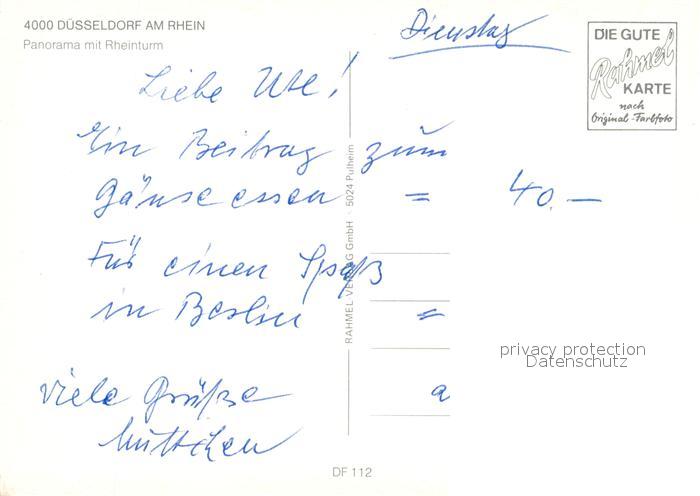 4000 DÜSSELDORF AM RHEIN
Panorama mit Rheinturm
Dienstag
DIE GUTE
Rahmel
KARTE
nach
Original-Farbfoto
Liebe Ute!
Ein Beitrag zum
Gänseessen = 40.—
Für einen Spaß
in Berlin =
viele Grüße
Muttchen
a
RAHMEL VERLAG GmbH · 5024 Pulheim
privacy protection
Datenschutz
DF 112